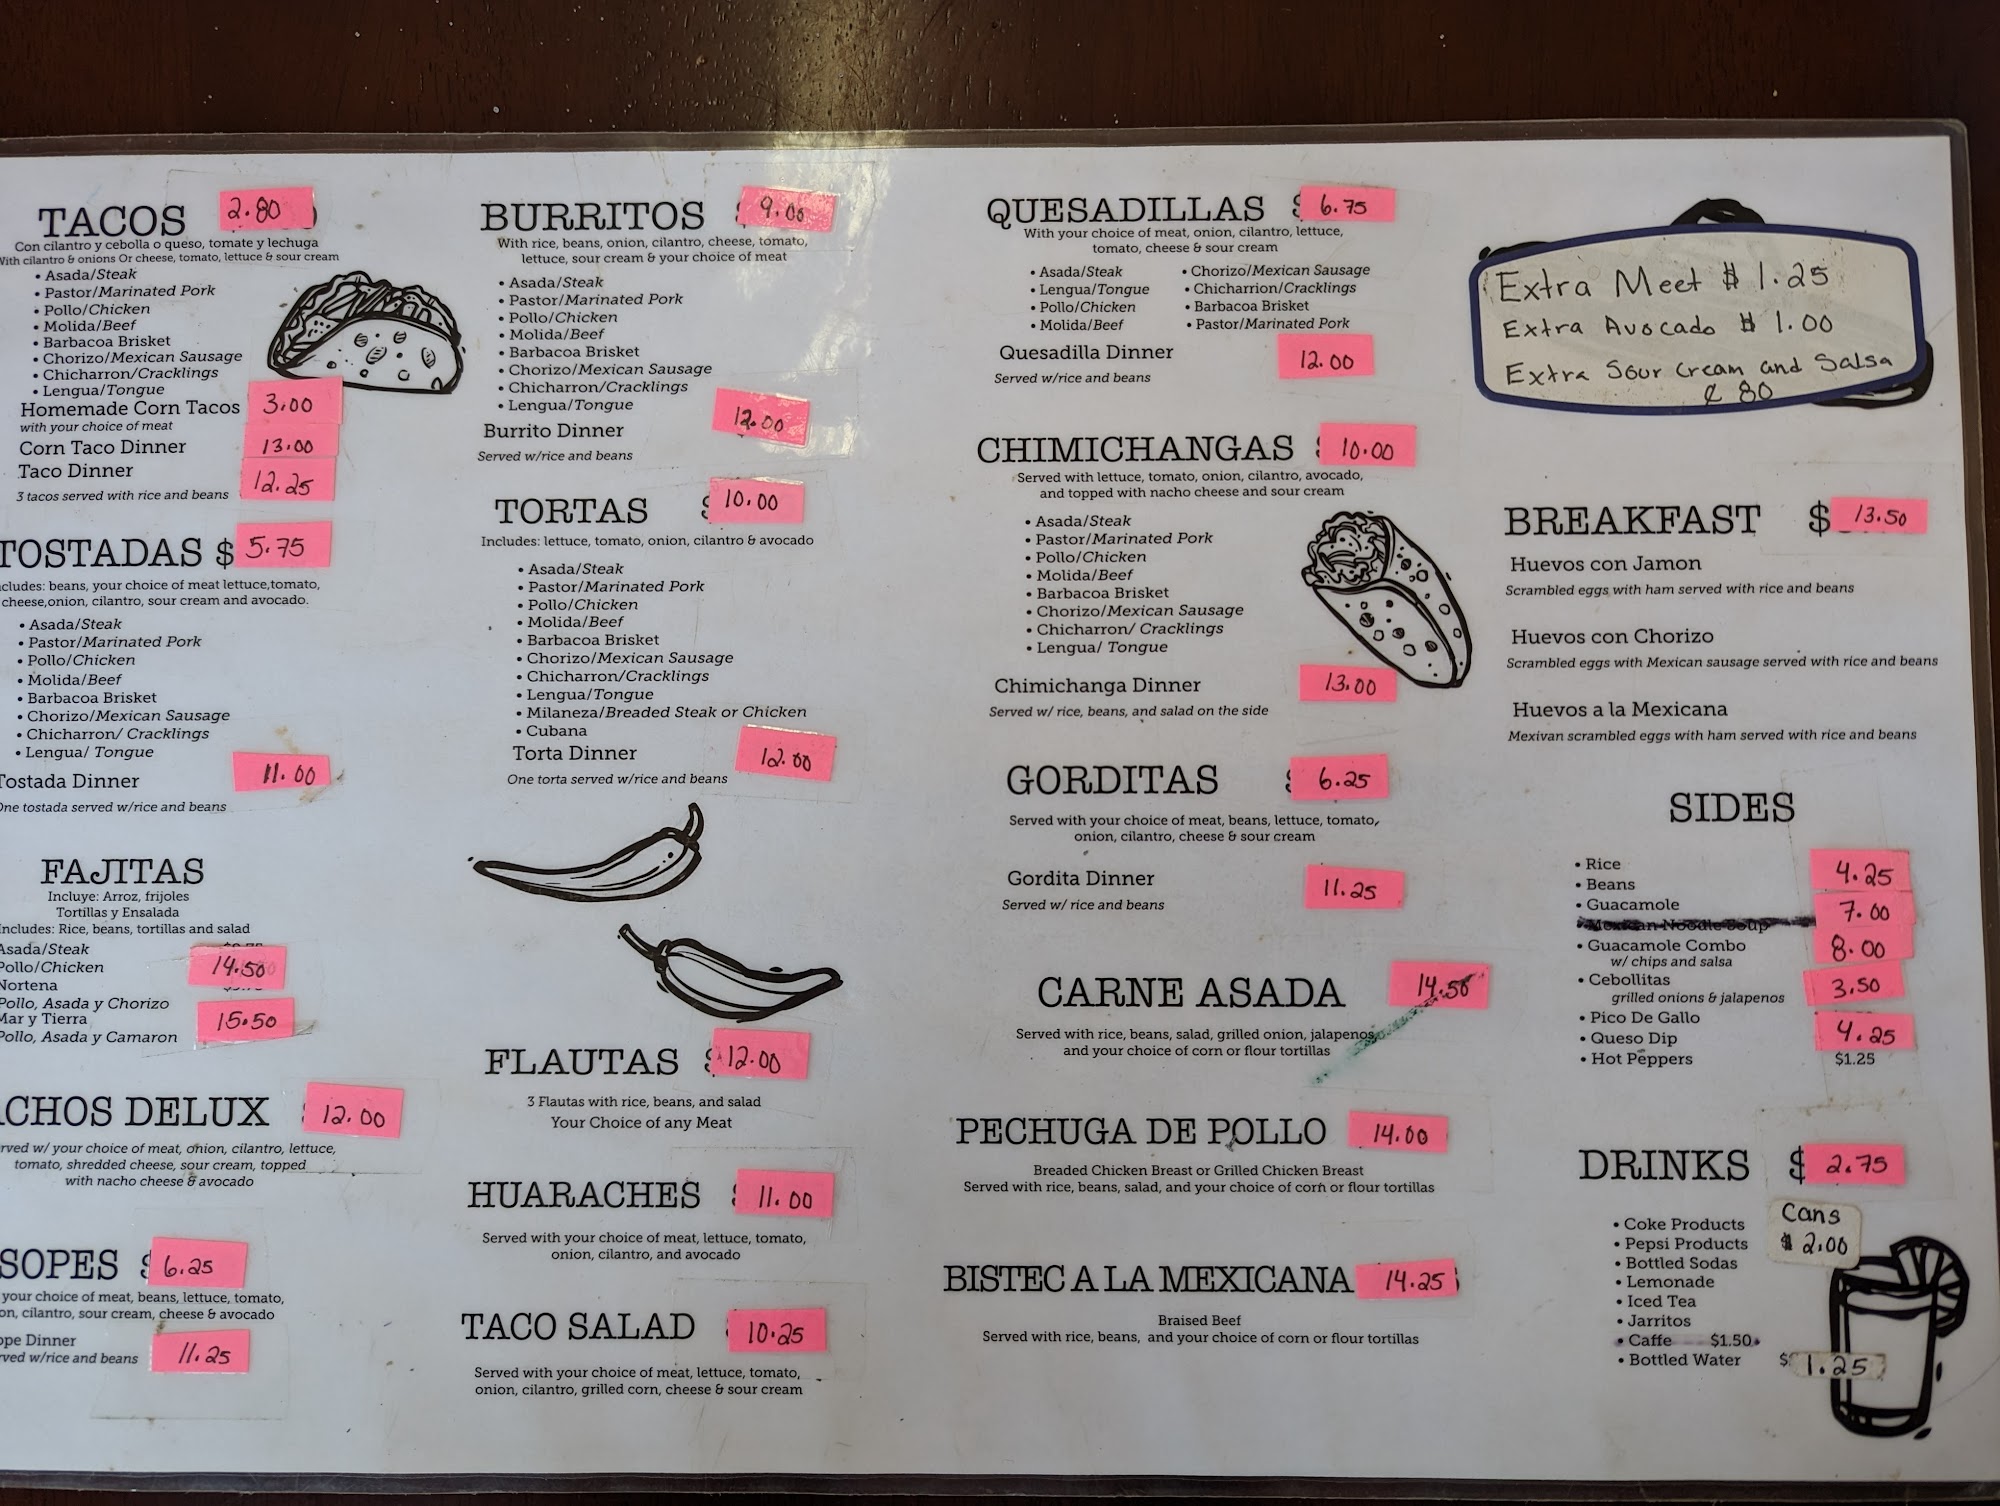 TACOS 2.80
Con cilantro y cebolla o queso, tomate y lechuga
With cilantro & onions Or cheese, tomato, lettuce & sour cream
• Asada/Steak
• Pastor/Marinated Pork
• Pollo/Chicken
• Molida/Beef
• Barbacoa Brisket
• Chorizo/Mexican Sausage
• Chicharron/Cracklings
• Lengua/Tongue
Homemade Corn Tacos 3.00
with your choice of meat
Corn Taco Dinner 13.00
Taco Dinner 12.25
3 tacos served with rice and beans
TOSTADAS $ 5.75
cludes: beans, your choice of meat lettuce,tomato,
cheese,onion, cilantro, sour cream and avocado.
• Asada/Steak
• Pastor/Marinated Pork
• Pollo/Chicken
• Molida/Beef
• Barbacoa Brisket
• Chorizo/Mexican Sausage
• Chicharron/ Cracklings
• Lengua/ Tongue
Tostada Dinner 11.00
One tostada served w/rice and beans
FAJITAS
Incluye: Arroz, frijoles
Tortillas y Ensalada
Includes: Rice, beans, tortillas and salad
Asada/Steak
Pollo/Chicken 14.50
Nortena
Pollo, Asada y Chorizo
Mar y Tierra 15.50
Pollo, Asada y Camaron
ACHOS DELUX 12.00
rved w/ your choice of meat, onion, cilantro, lettuce,
tomato, shredded cheese, sour cream, topped
with nacho cheese & avocado
SOPES $ 6.25
your choice of meat, beans, lettuce, tomato,
on, cilantro, sour cream, cheese & avocado
ope Dinner
rved w/rice and beans 11.25
BURRITOS 9.00
With rice, beans, onion, cilantro, cheese, tomato,
lettuce, sour cream & your choice of meat
• Asada/Steak
• Pastor/Marinated Pork
• Pollo/Chicken
• Molida/Beef
• Barbacoa Brisket
• Chorizo/Mexican Sausage
• Chicharron/Cracklings
• Lengua/Tongue
Burrito Dinner 12.00
Served w/rice and beans
TORTAS $ 10.00
Includes: lettuce, tomato, onion, cilantro & avocado
• Asada/Steak
• Pastor/Marinated Pork
• Pollo/Chicken
• Molida/Beef
• Barbacoa Brisket
• Chorizo/Mexican Sausage
• Chicharron/Cracklings
• Lengua/Tongue
• Milaneza/Breaded Steak or Chicken
• Cubana
Torta Dinner 12.00
One torta served w/rice and beans
FLAUTAS $ 12.00
3 Flautas with rice, beans, and salad
Your Choice of any Meat
HUARACHES 11.00
Served with your choice of meat, lettuce, tomato,
onion, cilantro, and avocado
TACO SALAD 10.25
Served with your choice of meat, lettuce, tomato,
onion, cilantro, grilled corn, cheese & sour cream
QUESADILLAS $ 6.75
With your choice of meat, onion, cilantro, lettuce,
tomato, cheese & sour cream
• Asada/Steak • Chorizo/Mexican Sausage
• Lengua/Tongue • Chicharrion/Cracklings
• Pollo/Chicken • Barbacoa Brisket
• Molida/Beef • Pastor/Marinated Pork
Quesadilla Dinner 12.00
Served w/rice and beans
CHIMICHANGAS 10.00
Served with lettuce, tomato, onion, cilantro, avocado,
and topped with nacho cheese and sour cream
• Asada/Steak
• Pastor/Marinated Pork
• Pollo/Chicken
• Molida/Beef
• Barbacoa Brisket
• Chorizo/Mexican Sausage
• Chicharron/ Cracklings
• Lengua/ Tongue
Chimichanga Dinner 13.00
Served w/ rice, beans, and salad on the side
GORDITAS 6.25
Served with your choice of meat, beans, lettuce, tomato,
onion, cilantro, cheese & sour cream
Gordita Dinner 11.25
Served w/ rice and beans
CARNE ASADA 14.50
Served with rice, beans, salad, grilled onion, jalapenos
and your choice of corn or flour tortillas
PECHUGA DE POLLO 14.00
Breaded Chicken Breast or Grilled Chicken Breast
Served with rice, beans, salad, and your choice of corn or flour tortillas
BISTEC A LA MEXICANA 14.25
Braised Beef
Served with rice, beans, and your choice of corn or flour tortillas
Extra Meet $ 1.25
Extra Avocado $ 1.00
Extra Sour Cream and Salsa
¢ 80
BREAKFAST $ 13.50
Huevos con Jamon
Scrambled eggs with ham served with rice and beans
Huevos con Chorizo
Scrambled eggs with Mexican sausage served with rice and beans
Huevos a la Mexicana
Mexivan scrambled eggs with ham served with rice and beans
SIDES
• Rice
• Beans 4.25
• Guacamole 7.00
• Mexican Noodle Soup
• Guacamole Combo 8.00
w/ chips and salsa
• Cebollitas 3.50
grilled onions & jalapenos
• Pico De Gallo
• Queso Dip 4.25
• Hot Peppers $1.25
DRINKS $ 2.75
• Coke Products Cans
• Pepsi Products $ 2.00
• Bottled Sodas
• Lemonade
• Iced Tea
• Jarritos
• Caffe $1.50
• Bottled Water $ 1.25